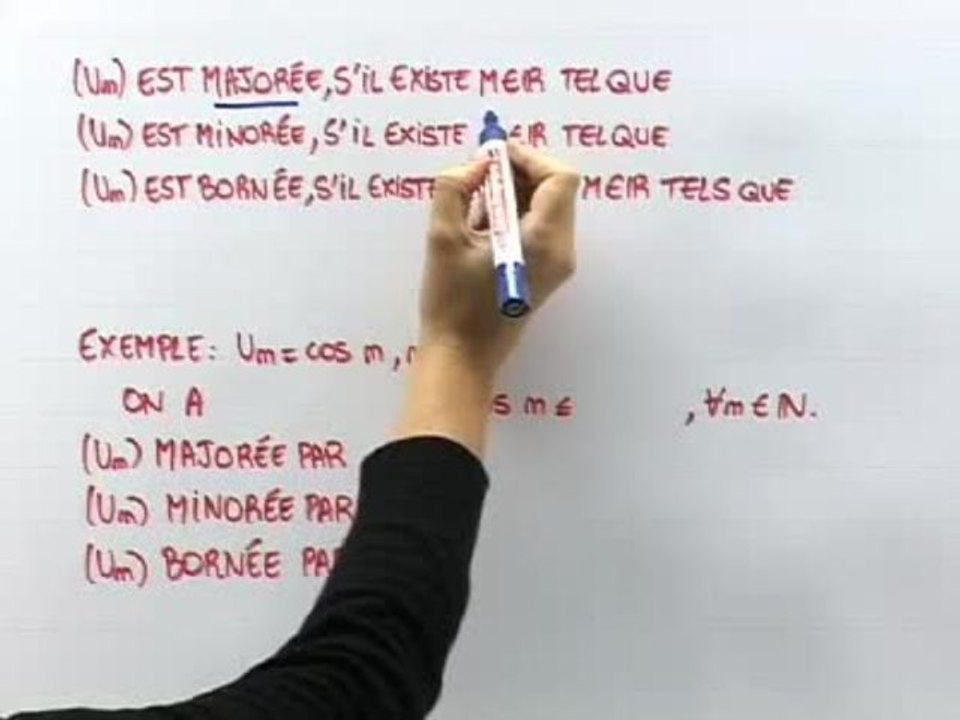 (Un) EST MAJORÉE, S'IL EXISTE M∈IR TEL QUE
(Un) EST MINORÉE, S'IL EXISTE ∈IR TEL QUE
(Un) EST BORNÉE, S'IL EXISTE M∈IR TELS QUE
EXEMPLE: Un = cos n,
ON A s n ≤ , ∀n ∈ IN.
(Un) MAJORÉE PAR
(Un) MINORÉE PAR
(Un) BORNÉE PA